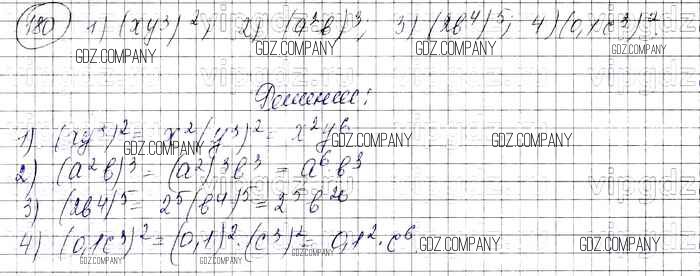 180 1) (xy³)²; 2) (a²b)³; 3) (2b⁴)⁵; 4) (0,1c³)²
GDZ.COMPANY GDZ.COMPANY GDZ.COMPANY GDZ.COMPANY
Решение:
1) (xy³)² = x²(y³)² = x²y⁶
GDZ.COMPANY GDZ.COMPANY GDZ.COMPANY
2) (a²b)³ = (a²)³b³ = a⁶b³
vipgdz
3) (2b⁴)⁵ = 2⁵(b⁴)⁵ = 2⁵b²⁰
4) (0,1c³)² = (0,1)²·(c³)² = 0,1²·c⁶
GDZ.COMPANY GDZ.COMPANY GDZ.COMPANY GDZ.COMPANY